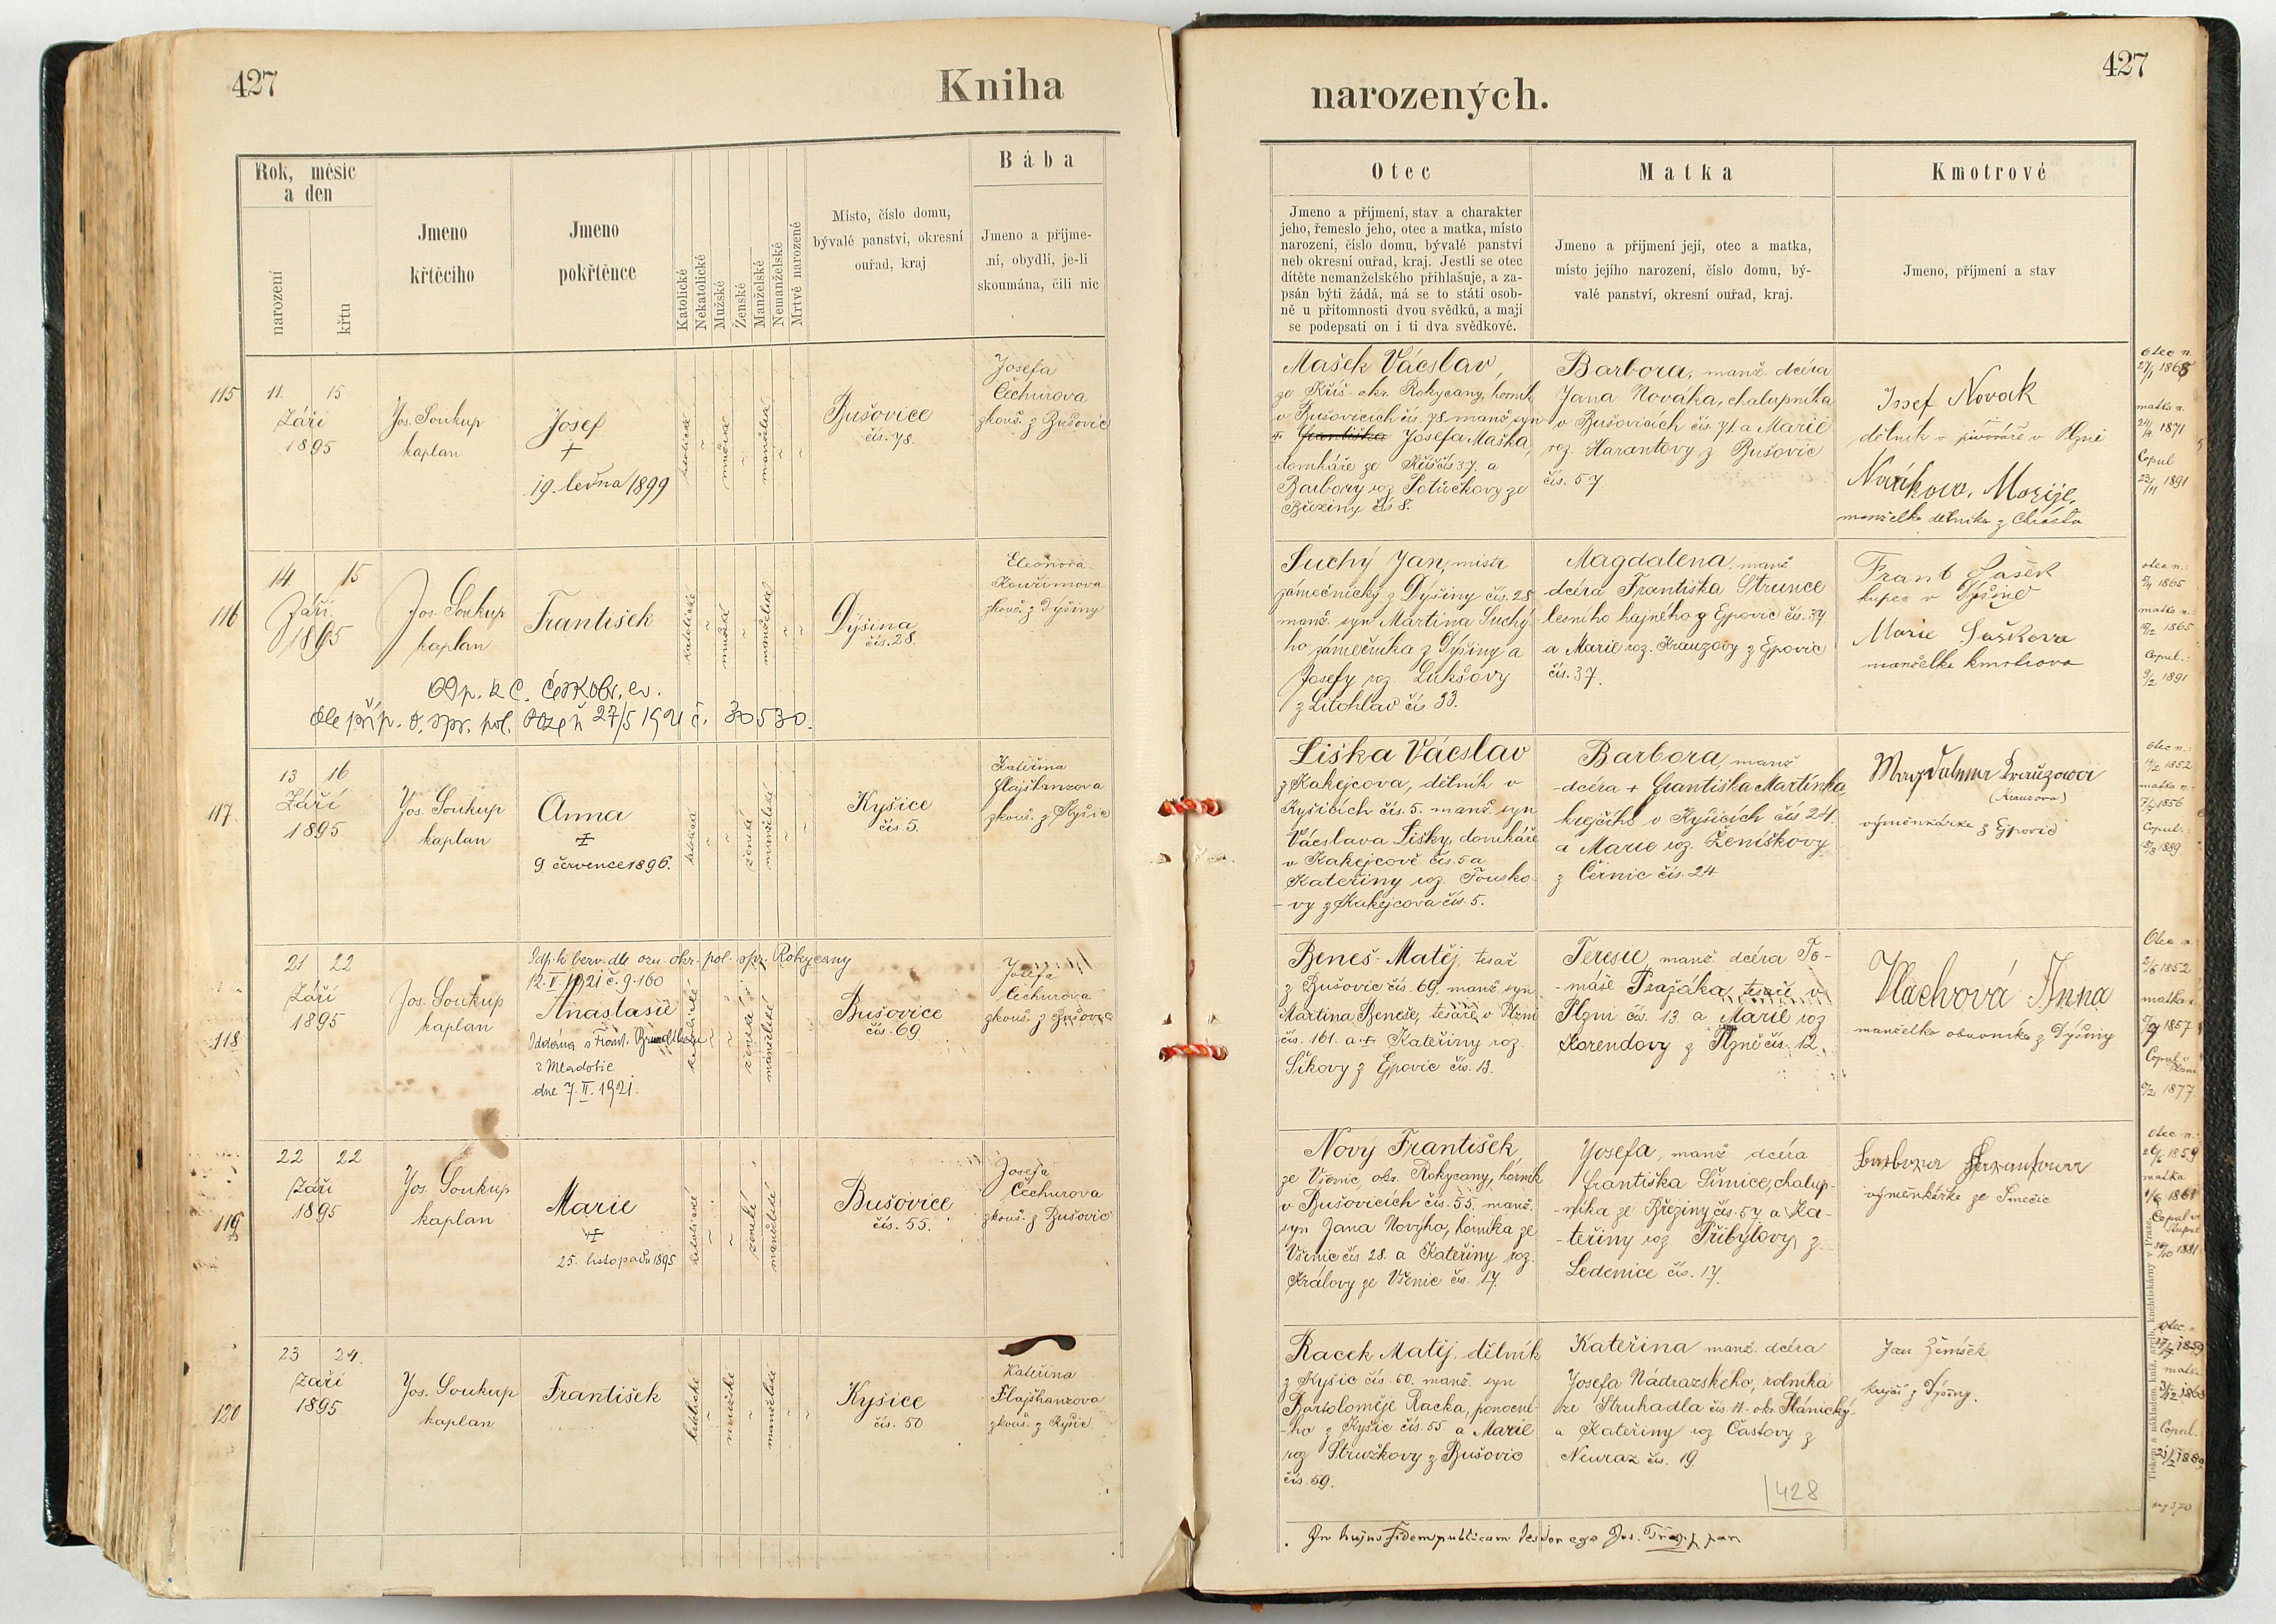 427
Kniha
Rok, měsíc
a den
narození
křtu
Jmeno
křtěcího
Jmeno
pokřtěnce
Katolické
Nekatolické
Mužské
Ženské
Manželské
Nemanželské
Mrtvě narozené
Místo, číslo domu,
bývalé panství, okresní
ouřad, kraj
Bába
Jmeno a příjme-
ní, obydlí, je-li
skoumána, čili nic
115
11. 15
Září
1895
Jos. Soukup
kaplan
Josef
+
19. ledna 1899
katolické
mužské
manželské
Bušovice
čís. 78.
Josefa
Čechurova
zkouš. z Bušovic
116
14. 15
Září
1895
Jos. Soukup
kaplan
František
katolické
mužské
manželské
Dýšina
čís. 28.
Eleonora
Kouřimova
zkouš. z Dýšiny
Odp. k c. českobr. ev.
dle příp. o. spr. pol. Plzeň 27/5 1921 č. 30530.
117.
13 16
Září
1895
Jos. Soukup
kaplan
Anna
+
9. července 1896.
ženské
manželské
Kyšice
čís 5.
Kateřina
Hajšmanova
zkouš. z Kyšic
118
21 22
Září
1895
Jos. Soukup
kaplan
Odp. k bezv. dle ozn. okr. pol. spr. Rokycany
12. V. 1921 č. 9.160
Anastasie
Oddána s Frant.
z Mladotic
dne 7. II. 1921.
katolické
ženské
manželské
Bušovice
čís. 69
Josefa
Čechurova
zkouš. z Bušovic
119
22 22
Září
1895
Jos. Soukup
kaplan
Marie
+
25. listopadu 1895
katolické
ženské
manželské
Bušovice
čís. 55.
Josefa
Čechurova
zkouš. z Bušovic
120
23 24.
Září
1895
Jos. Soukup
kaplan
František
katolické
mužské
manželské
Kyšice
čís. 50
Kateřina
zkouš. z Kyšic
427
narozených.
Otec
Jmeno a příjmení, stav a charakter
jeho, řemeslo jeho, otec a matka, místo
narození, číslo domu, bývalé panství
neb okresní ouřad, kraj. Jestli se otec
dítěte nemanželského přihlašuje, a za-
psán býti žádá, má se to státi osob-
ně u přítomnosti dvou svědků, a mají
se podepsati on i ti dva svědkové.
Matka
Jmeno a příjmení její, otec a matka,
místo jejího narození, číslo domu, bý-
valé panství, okresní ouřad, kraj.
Kmotrové
Jmeno, příjmení a stav
Mašek Vácslav,
ze Kříš okr. Rokycany, horník
v Bušovicích čís. 78. manž. syn
+ Františka Josefa Maška,
domkáře ze Kříš čís 37. a
Barbory roz. Potůčkovy ze
Březiny čís 8.
Barbora, manž. dcéra
Jana Nováka, chalupníka
v Bušovicích čís. 71. a Marie
roz. Harantovy z Bušovic
čís. 57.
Josef Novák
dělník v pivováře v Plzni
Nováková, Marije,
manželka dělníka z Chrástu
otec n.
27/1 1868
matka n.
24/4 1871
Copul
22/11 1891
Suchý Jan, mistr
zámečnický z Dýšiny čís. 28
manž. syn Martina Suchý-
ho zámečníka z Dýšiny a
Josefy roz Lukšovy
z Litohlav čís 33.
Magdalena, manž
dcéra Františka Strunce
lesního hajného z Ejpovic čís. 37.
a Marie roz. Krauzovy z Ejpovic
čís. 37.
Frant Sašek
kupec v Dýšině
Marie Saškova
manželka kmotrova
otec n.
5/4 1865
matka n.
19/2 1865
Copul.:
9/2 1891
Liška Vácslav
z Kakejcova, dělník v
Kyšicích čís. 5. manž. syn
Vácslava Lišky, domkáře
v Kakejcově čís. 5 a
Kateřiny roz. Tousko-
-vy z Kakejcova čís. 5.
Barbora, manž
dcéra + Františka Martínka
krejčího v Kyšicích čís. 24.
a Marie roz. Ženíškovy
z Černic čís. 24
Magdalena Krauzowa
(Krauzova)
výměnkářka z Ejpovic
otec n.:
14/2 1852
matka n.:
7/7 1856
Copul.:
18/8 1889
Beneš Matěj, tesař
z Bušovic čís. 69. manž syn
Martina Beneše, tesaře v Plzni
čís. 161. a + Kateřiny roz.
Šíkovy z Ejpovic čís. 13.
Teresie, manž. dcéra To-
-máše Pražáka, tesaře v
Plzni čís. 13. a Marie roz
Korendovy z Plzně čís. 12.
Vlachová Anna
manželka obuvníka z Dýšiny
Otec n.
2/6 1852
matka n.
5/9 1857
Copul. v
Plzni
9/2 1877.
Nový František
ze Všenic, okr. Rokycany, horník
v Bušovicích čís. 55. manž.
syn Jana Nového, horníka ze
Všenic čís. 28. a Kateřiny roz.
Královy ze Všenic čís. 17.
Josefa, manž. dcéra
Františka Šimice, chalup-
-níka ze Březiny čís. 57. a Ka-
-teřiny roz Přibylovy, z
Ledenice čís. 17.
Barbora Harantowa
výměnkářka ze Smědčic
otec n.:
26/2 1859
matka
1/6 1861
Copul v
1881
Racek Matěj, dělník
z Kyšic čís. 50. manž. syn
Bartoloměje Racka, ponocné-
-ho z Kyšic čís. 55. a Marie
roz Stružkovy z Bušovic
čís. 69.
Kateřina manž. dcéra
Josefa Nádrazského, rolníka
ze Struhadla čís. 11. okr. Plánický
a Kateřiny roz Častovy z
Neuraz čís. 19.
Jan Zimšek
krejčí z Dýšiny.
otec n.
1859
matka
1863
Copul.
1889
428
In hujus fidem publicam testor ego Jos.
Tiskem a nákladem kníž. arcib. knihtiskárny v Praze.